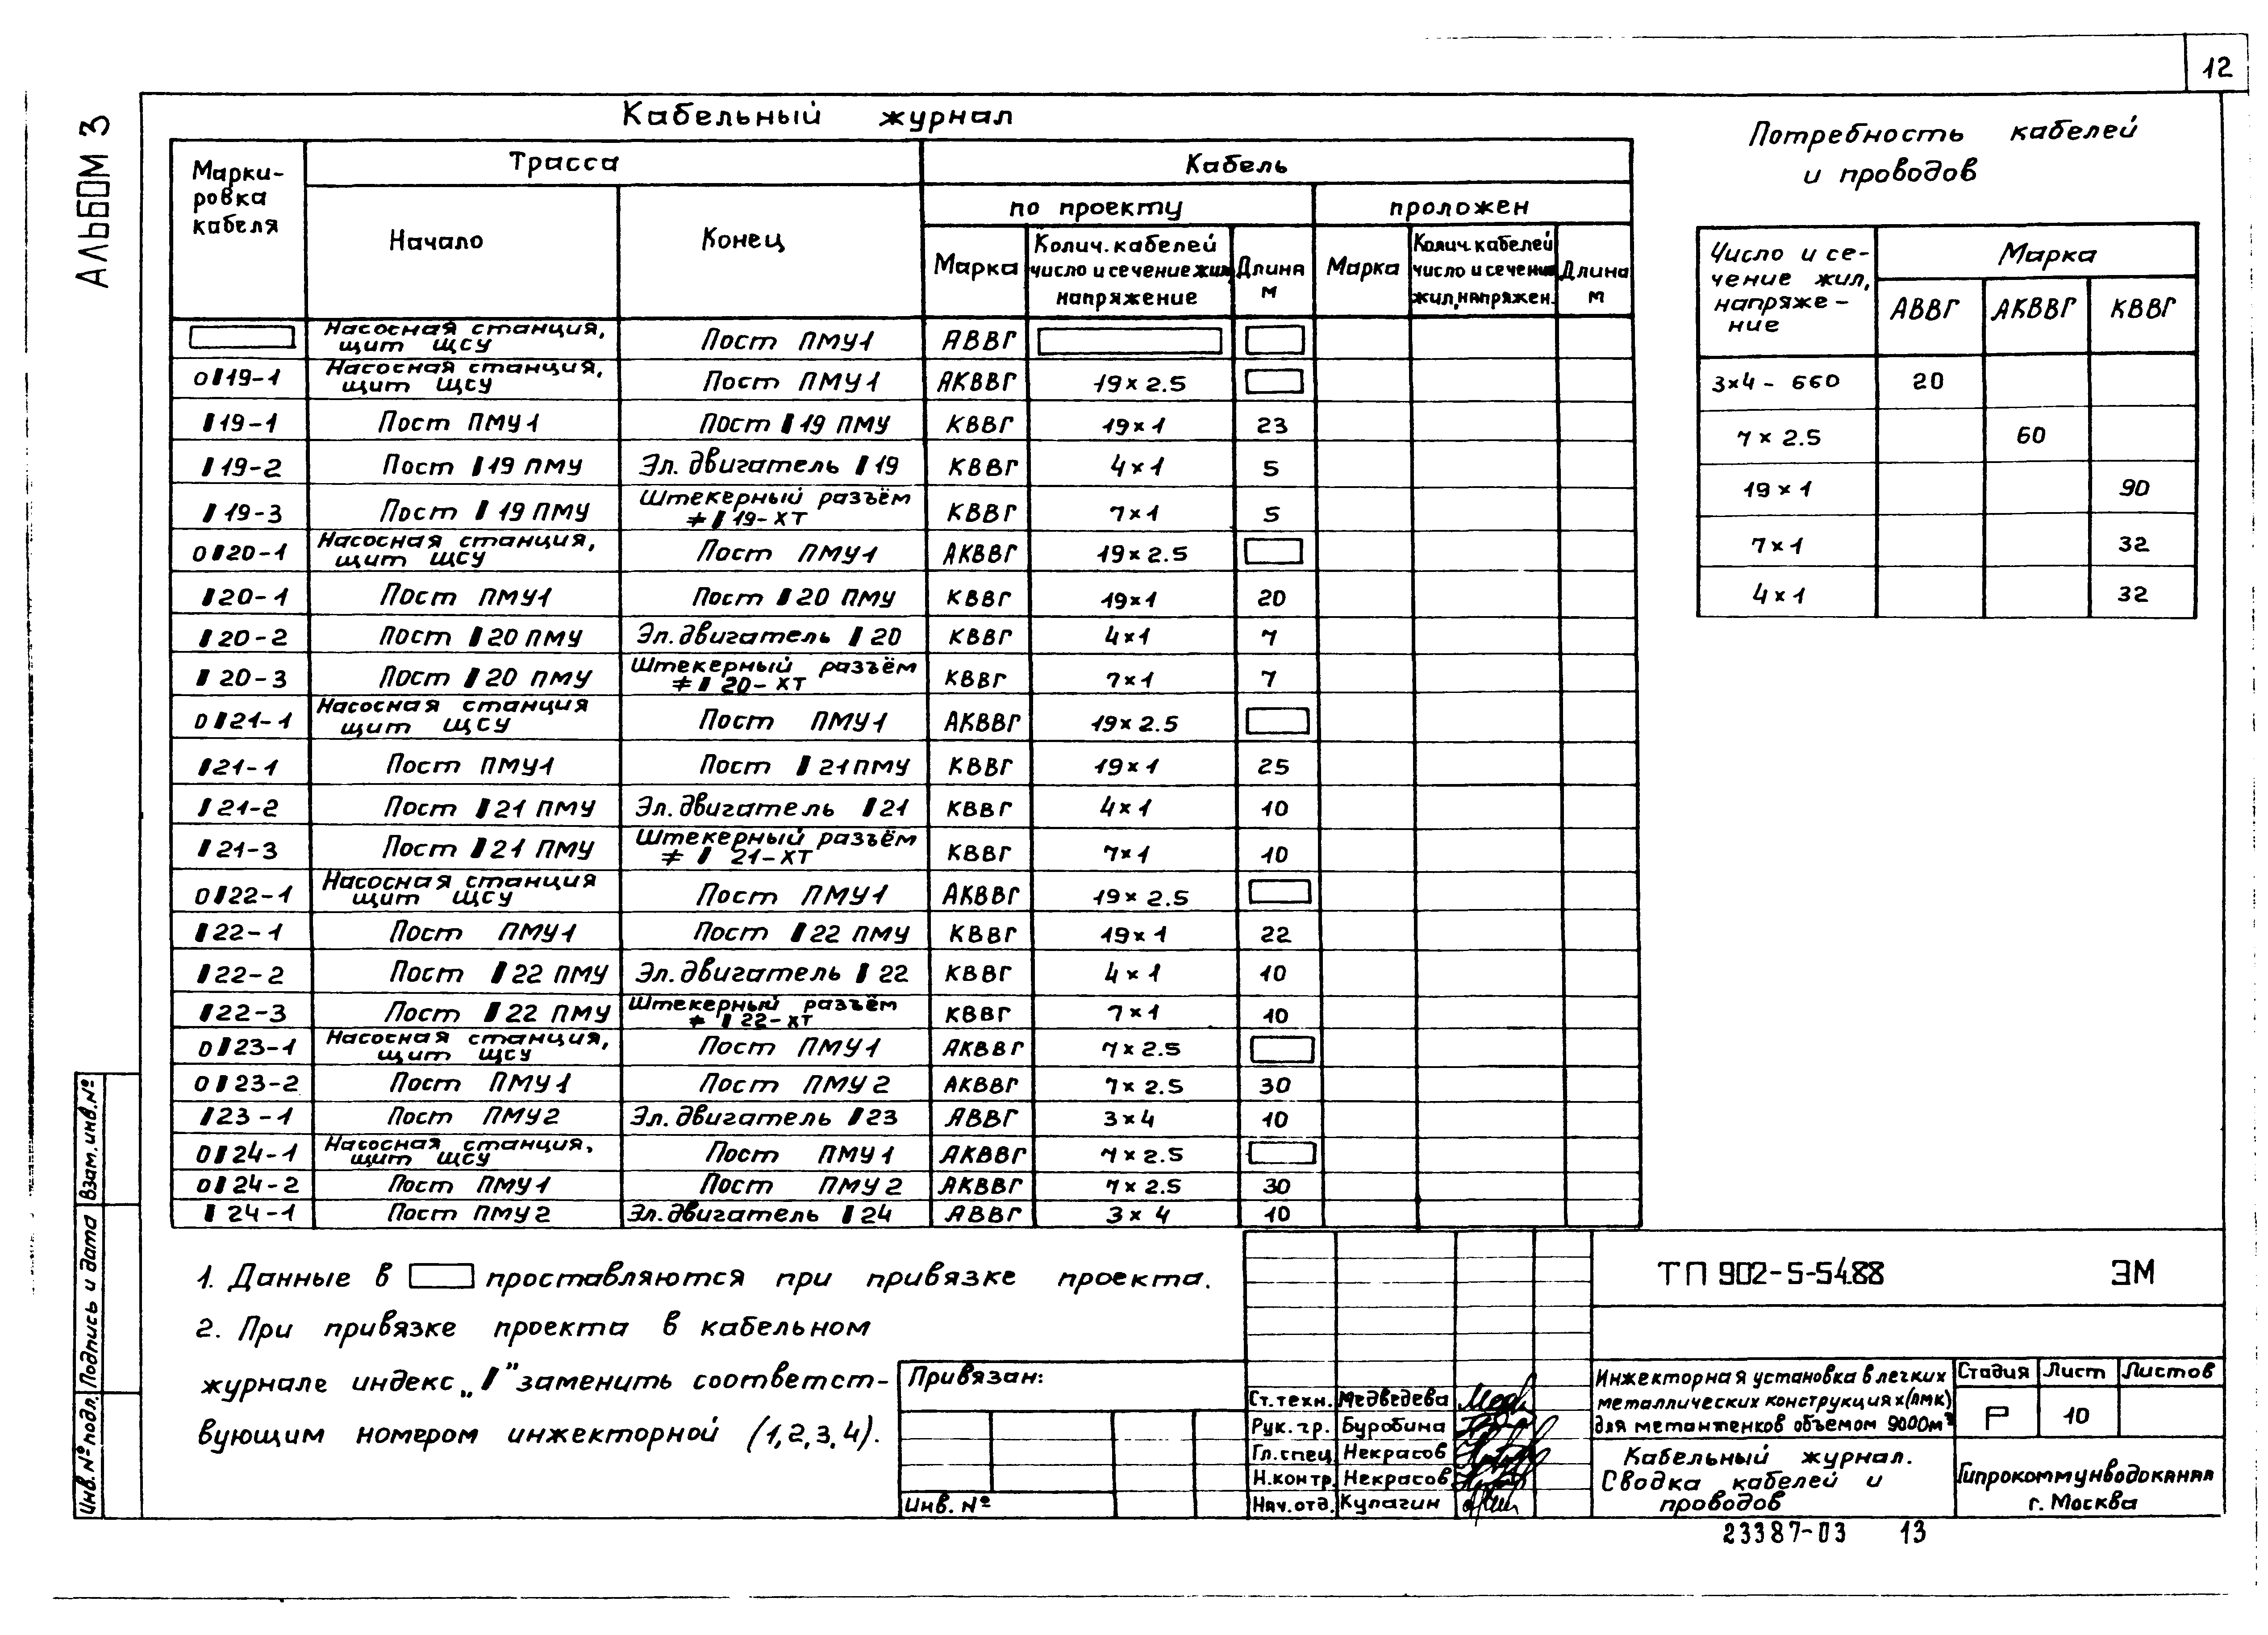 12
АЛЬБОМ 3
Кабельный журнал
Марки-
ровка
кабеля
Трасса
Кабель
Начало
Конец
по проекту
проложен
Марка
Колич. кабелей
число и сечение жил,
напряжение
Длина
м
Марка
Колич. кабелей
число и сечение
жил, напряжен.
Длина
м
Насосная станция,
щит ЩСУ Пост ПМУ1 АВВГ
0▮19-1 Насосная станция,
щит ЩСУ Пост ПМУ1 АКВВГ 19×2.5
▮19-1 Пост ПМУ1 Пост ▮19 ПМУ КВВГ 19×1 23
▮19-2 Пост ▮19 ПМУ Эл. двигатель ▮19 КВВГ 4×1 5
▮19-3 Пост ▮19 ПМУ Штекерный разъём
≠▮19-ХТ КВВГ 7×1 5
0▮20-1 Насосная станция,
щит ЩСУ Пост ПМУ1 АКВВГ 19×2.5
▮20-1 Пост ПМУ1 Пост ▮20 ПМУ КВВГ 19×1 20
▮20-2 Пост ▮20 ПМУ Эл. двигатель ▮20 КВВГ 4×1 7
▮20-3 Пост ▮20 ПМУ Штекерный разъём
≠▮20-ХТ КВВГ 7×1 7
0▮21-1 Насосная станция
щит ЩСУ Пост ПМУ1 АКВВГ 19×2.5
▮21-1 Пост ПМУ1 Пост ▮21 ПМУ КВВГ 19×1 25
▮21-2 Пост ▮21 ПМУ Эл. двигатель ▮21 КВВГ 4×1 10
▮21-3 Пост ▮21 ПМУ Штекерный разъём
≠▮21-ХТ КВВГ 7×1 10
0▮22-1 Насосная станция
щит ЩСУ Пост ПМУ1 АКВВГ 19×2.5
▮22-1 Пост ПМУ1 Пост ▮22 ПМУ КВВГ 19×1 22
▮22-2 Пост ▮22 ПМУ Эл. двигатель ▮22 КВВГ 4×1 10
▮22-3 Пост ▮22 ПМУ Штекерный разъём
≠▮22-ХТ КВВГ 7×1 10
0▮23-1 Насосная станция,
щит ЩСУ Пост ПМУ1 АКВВГ 7×2.5
0▮23-2 Пост ПМУ1 Пост ПМУ2 АКВВГ 7×2.5 30
▮23-1 Пост ПМУ2 Эл. двигатель ▮23 АВВГ 3×4 10
0▮24-1 Насосная станция,
щит ЩСУ Пост ПМУ1 АКВВГ 7×2.5
0▮24-2 Пост ПМУ1 Пост ПМУ2 АКВВГ 7×2.5 30
▮24-1 Пост ПМУ2 Эл. двигатель ▮24 АВВГ 3×4 10
Потребность кабелей
и проводов
Число и се-
чение жил,
напряже-
ние
Марка
АВВГ АКВВГ КВВГ
3×4 - 660 20
7×2.5 60
19×1 90
7×1 32
4×1 32
1. Данные в ▭ проставляются при привязке проекта.
2. При привязке проекта в кабельном
журнале индекс „▮” заменить соответст-
вующим номером инжекторной (1,2,3,4).
Привязан:
Инв. №
Ст.техн. Медведева
Рук. гр. Буробина
Гл.спец. Некрасов
Н.контр. Некрасов
Нач.отд. Кулагин
ТП 902-5-54.88 ЭМ
Инжекторная установка в легких
металлических конструкциях (ЛМК)
для метантенков объемом 9000м³
Стадия Лист Листов
Р 10
Кабельный журнал.
Сводка кабелей и
проводов
Гипрокоммунводоканал
г. Москва
23387-03 13
Взам. инв. №
Подпись и дата
Инв. № подл.